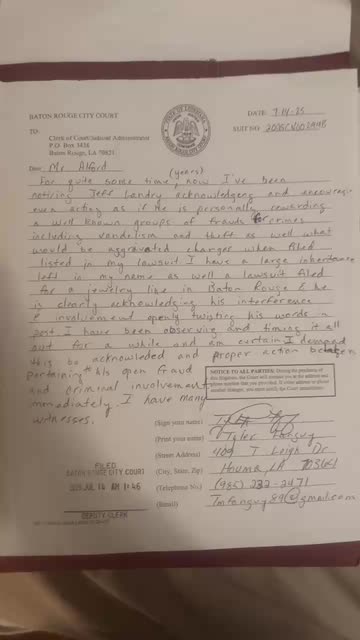 BATON ROUGE CITY COURT
DATE: 7-14-25
TO:
SUIT NO.
Clerk of Court/Judicial Administrator
P.O. Box 3438
Baton Rouge, LA 70821
Dear Mr Alford
(years)
For quite some time, now I've been
noticing Jeff Landry acknowledging and encouragin
even acting as if he is personally rewarding
a well known groups of frauds for crimes
including vandelism and theft as well what
would be aggravated charges when filed
listed in my lawsuit I have a large inheritance
left in my name as well a lawsuit filed
for a jewelry line in Baton Rouge & he
is clearly acknowledging his interference
& involvement openly twisting his words in
post I have been observing and timing it all
out for a while and am curtain I demand
this be acknowleded and proper action be taken
pertaining to his open fraud
and criminal involvement
immediately. I have many
witnesses.
NOTICE TO ALL PARTIES: During the pendency of
this litigation, the Court will contact you at the address and
phone number that you provided. If either address or phone
number changes, you must notify the Court immediately.
(Sign your name)
(Print your name) Tyler
(Street Address) 409 T Leigh Dr
(City, State, Zip) Houma, LA
(Telephone No.) (985) 232-2471
(Email) @gmail.com
FILED
BATON ROUGE CITY COURT
2025 JUL 14 AM 11:46
DEPUTY CLERK